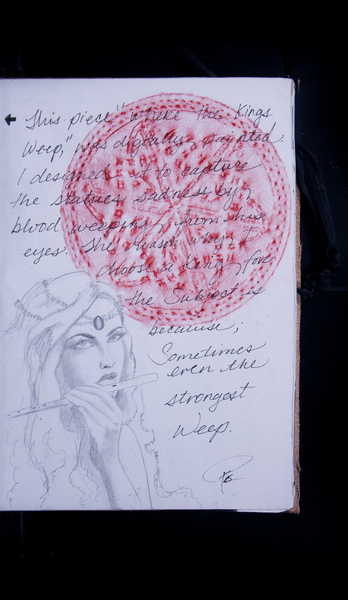 This piece "where the Kings
Weep," was digitally painted.
I designed it to capture
the statues sadness by,
blood weeping from his
eyes. The reason why I
choose a King for
the Subject is
because;
Sometimes
even the
strongest
Weep.